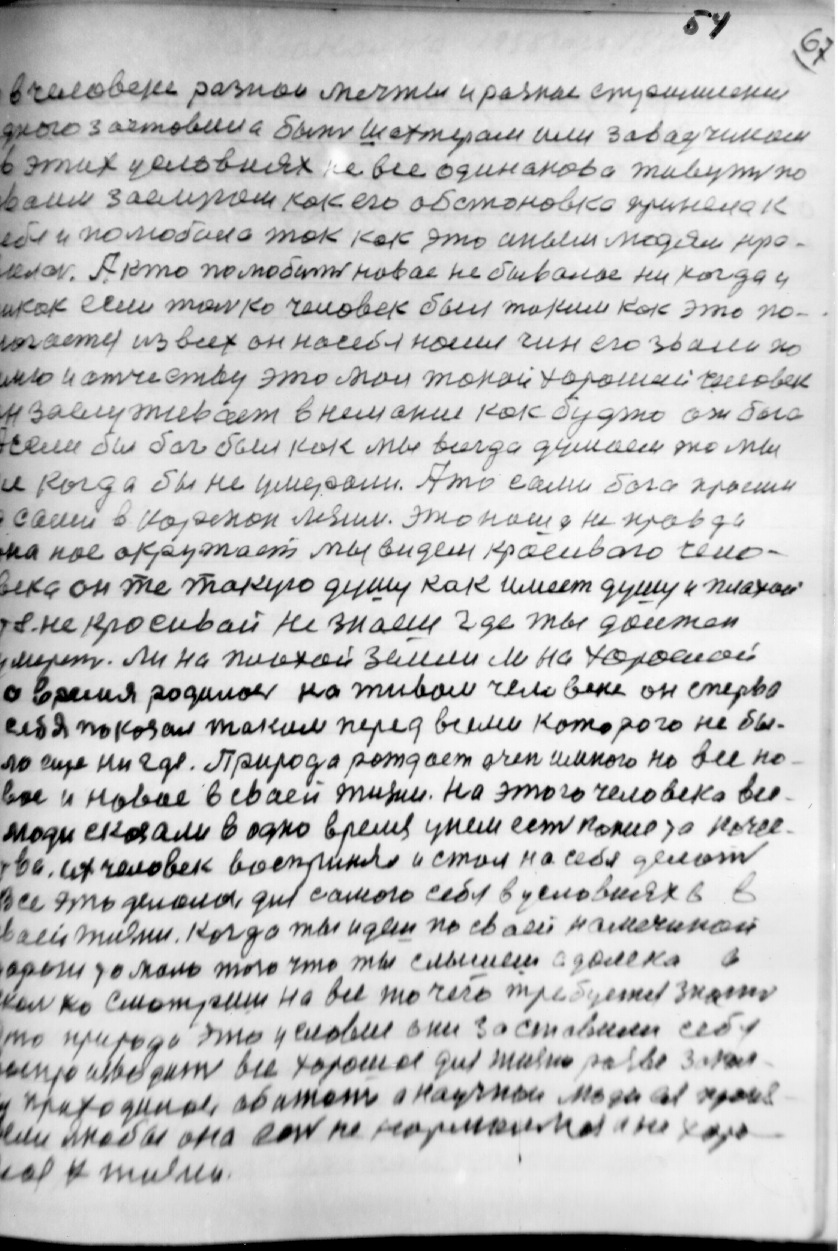 54
67
в человеке разнои мечты и разное стримление
дного заставила быть шахтерам или заводчиком
в этих условиях не все одинакова живут по
ваим заслугам как его обстановка принела к
ебя и полюбила так как это иным людям нра-
А кто полюбит новае не бывалое ни когда и
икак если толко человек был таким как это по-
из всех он насебя нашел чин его звали по
имю и отчеству это мол такой хороший человек
н заслуживает внемание как будто от бога
если бы бог был как мы всегда думаем то мы
и когда бы не умерали. А то сами бога просим
а сами в лезим. Это наша не правда
она нас окружает мы видем красивого чело-
века он же такую душу как имеет душу и плахой
не кросивай не знаеш где ты должен
умереть. Ли на плахой земли ли на хорошой
а время родилось на живом человеке он сперва
себя показал таким перед всеми которого не бы-
ло еще ни где. Природа рождает очен многого но все но-
вое и новое в сваей жизни. На этого человека все
люди сказали в одно время у нем есть качес-
тва. их человек воспринял и стал на себя делать
Все это делалось для самого себя в условиях в в
ваей жизни. Когда ты идеш по сваей намеченой
дароги то мало того что ты слышеш а далека в
сколко смотриш на все то чего требуется знать
это природа это условие они заставили себя
воспроизводить все хорошое для жизни разве
приходилось обитать а научнои люди
якобы она не нормальная и не харо-
к жизни.